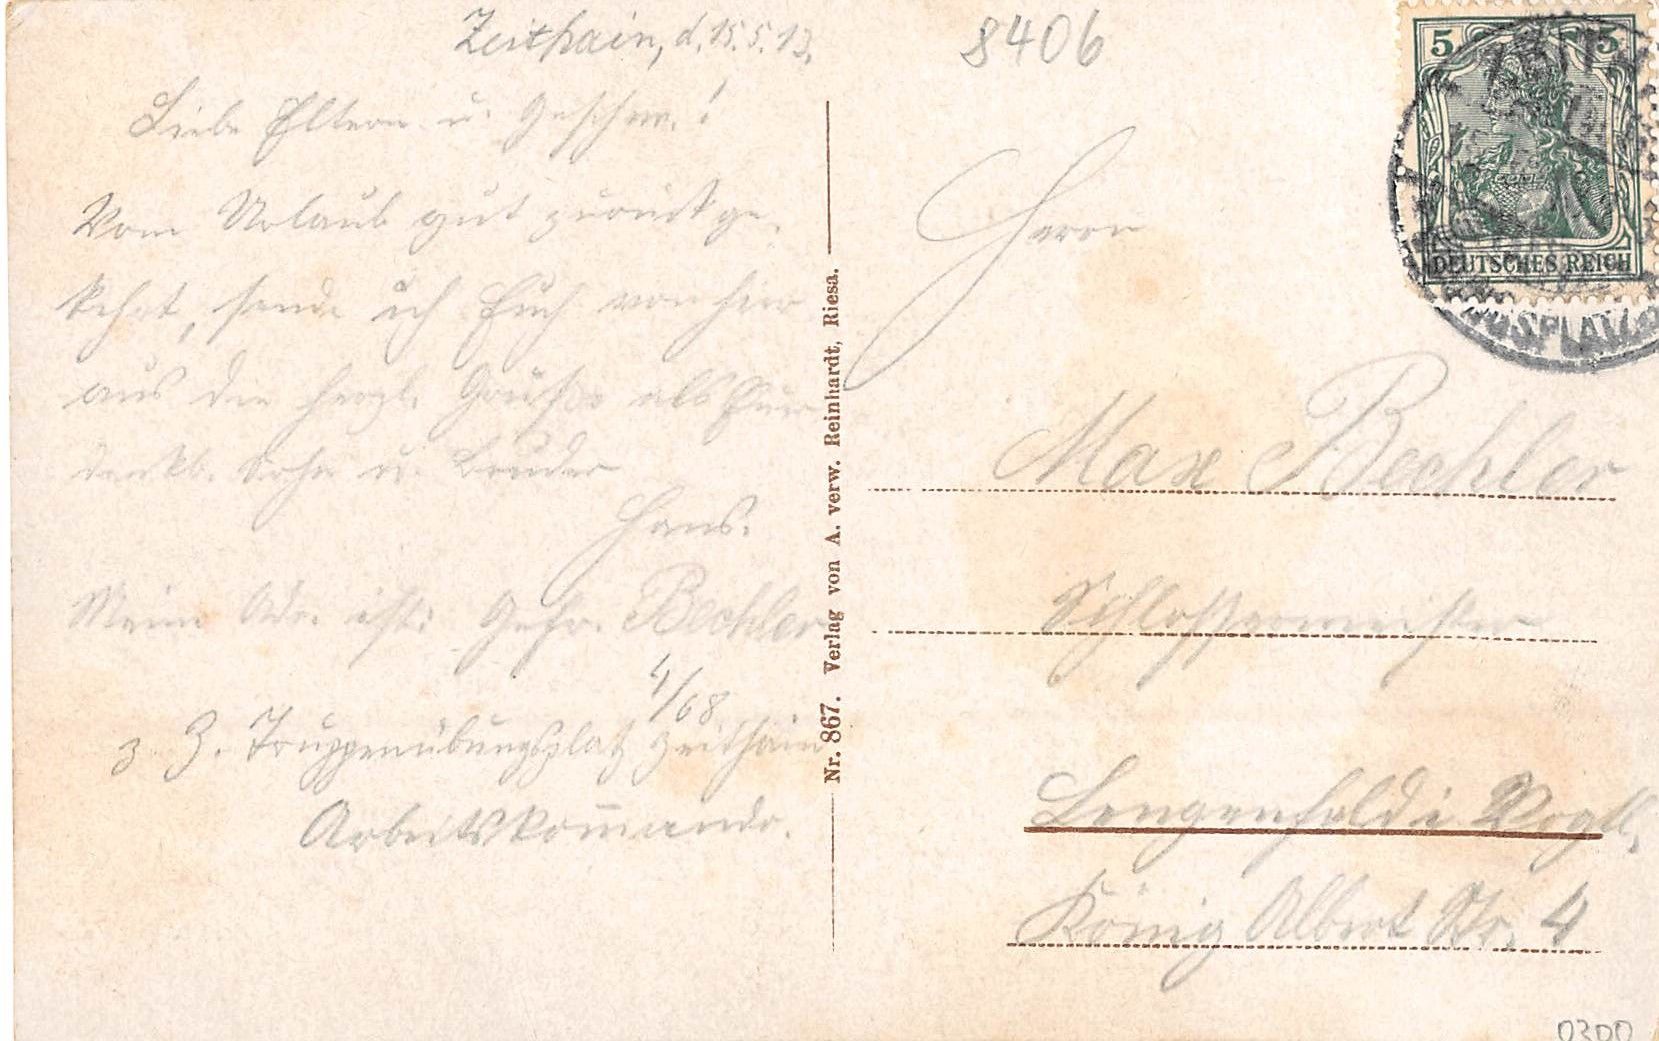 Zeithain, d. 15.5.13.
8406
Liebe Eltern u. Geschw.!
Vom Urlaub gut zurückge-
kehrt, sende ich Euch von hier
aus die herzl. Grüße als Euer
dankb. Sohn u. Bruder
Hans.
Meine Adr. ist: Gefr. Bechler
4/68
z. Z. Truppenübungsplatz Zeithain
Arbeitskom̄ando.
Nr. 867. Verlag von A. verw. Reinhardt, Riesa.
5 5
DEUTSCHES REICH
Herrn
Max Bechler
Schlossermeister
Lengenfeld i. Vogtl.
König Albert Str. 4
0300